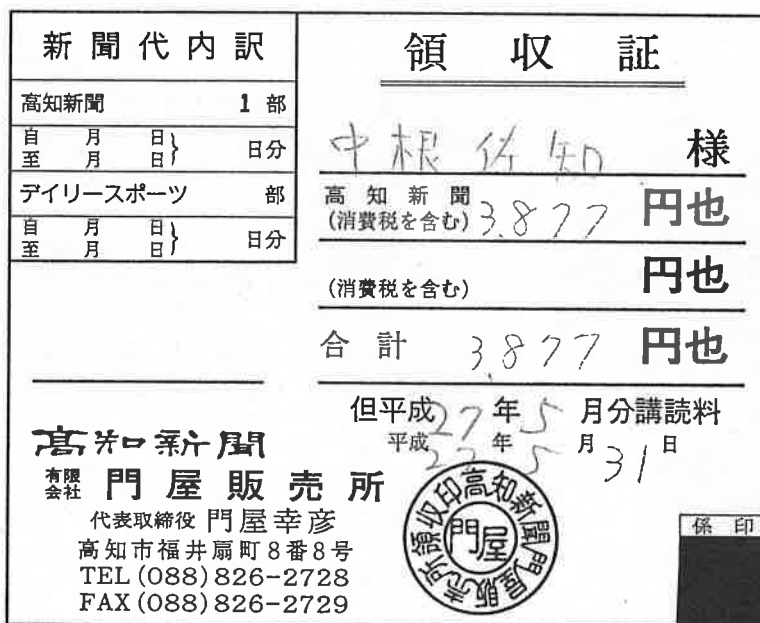 新聞代内訳
高知新聞 1 部
自 月 日
至 月 日} 日分
デイリースポーツ 部
自 月 日
至 月 日} 日分
領収証
中根佐知 様
高知新聞
(消費税を含む) 3,877 円也
(消費税を含む) 円也
合計 3,877 円也
但平成27年5月分講読料
平成27年5月31日
高知新聞
有限会社 門屋販売所
代表取締役 門屋幸彦
高知市福井扇町8番8号
TEL(088)826-2728
FAX(088)826-2729
高知新聞門屋販売所領収印
門屋
係印